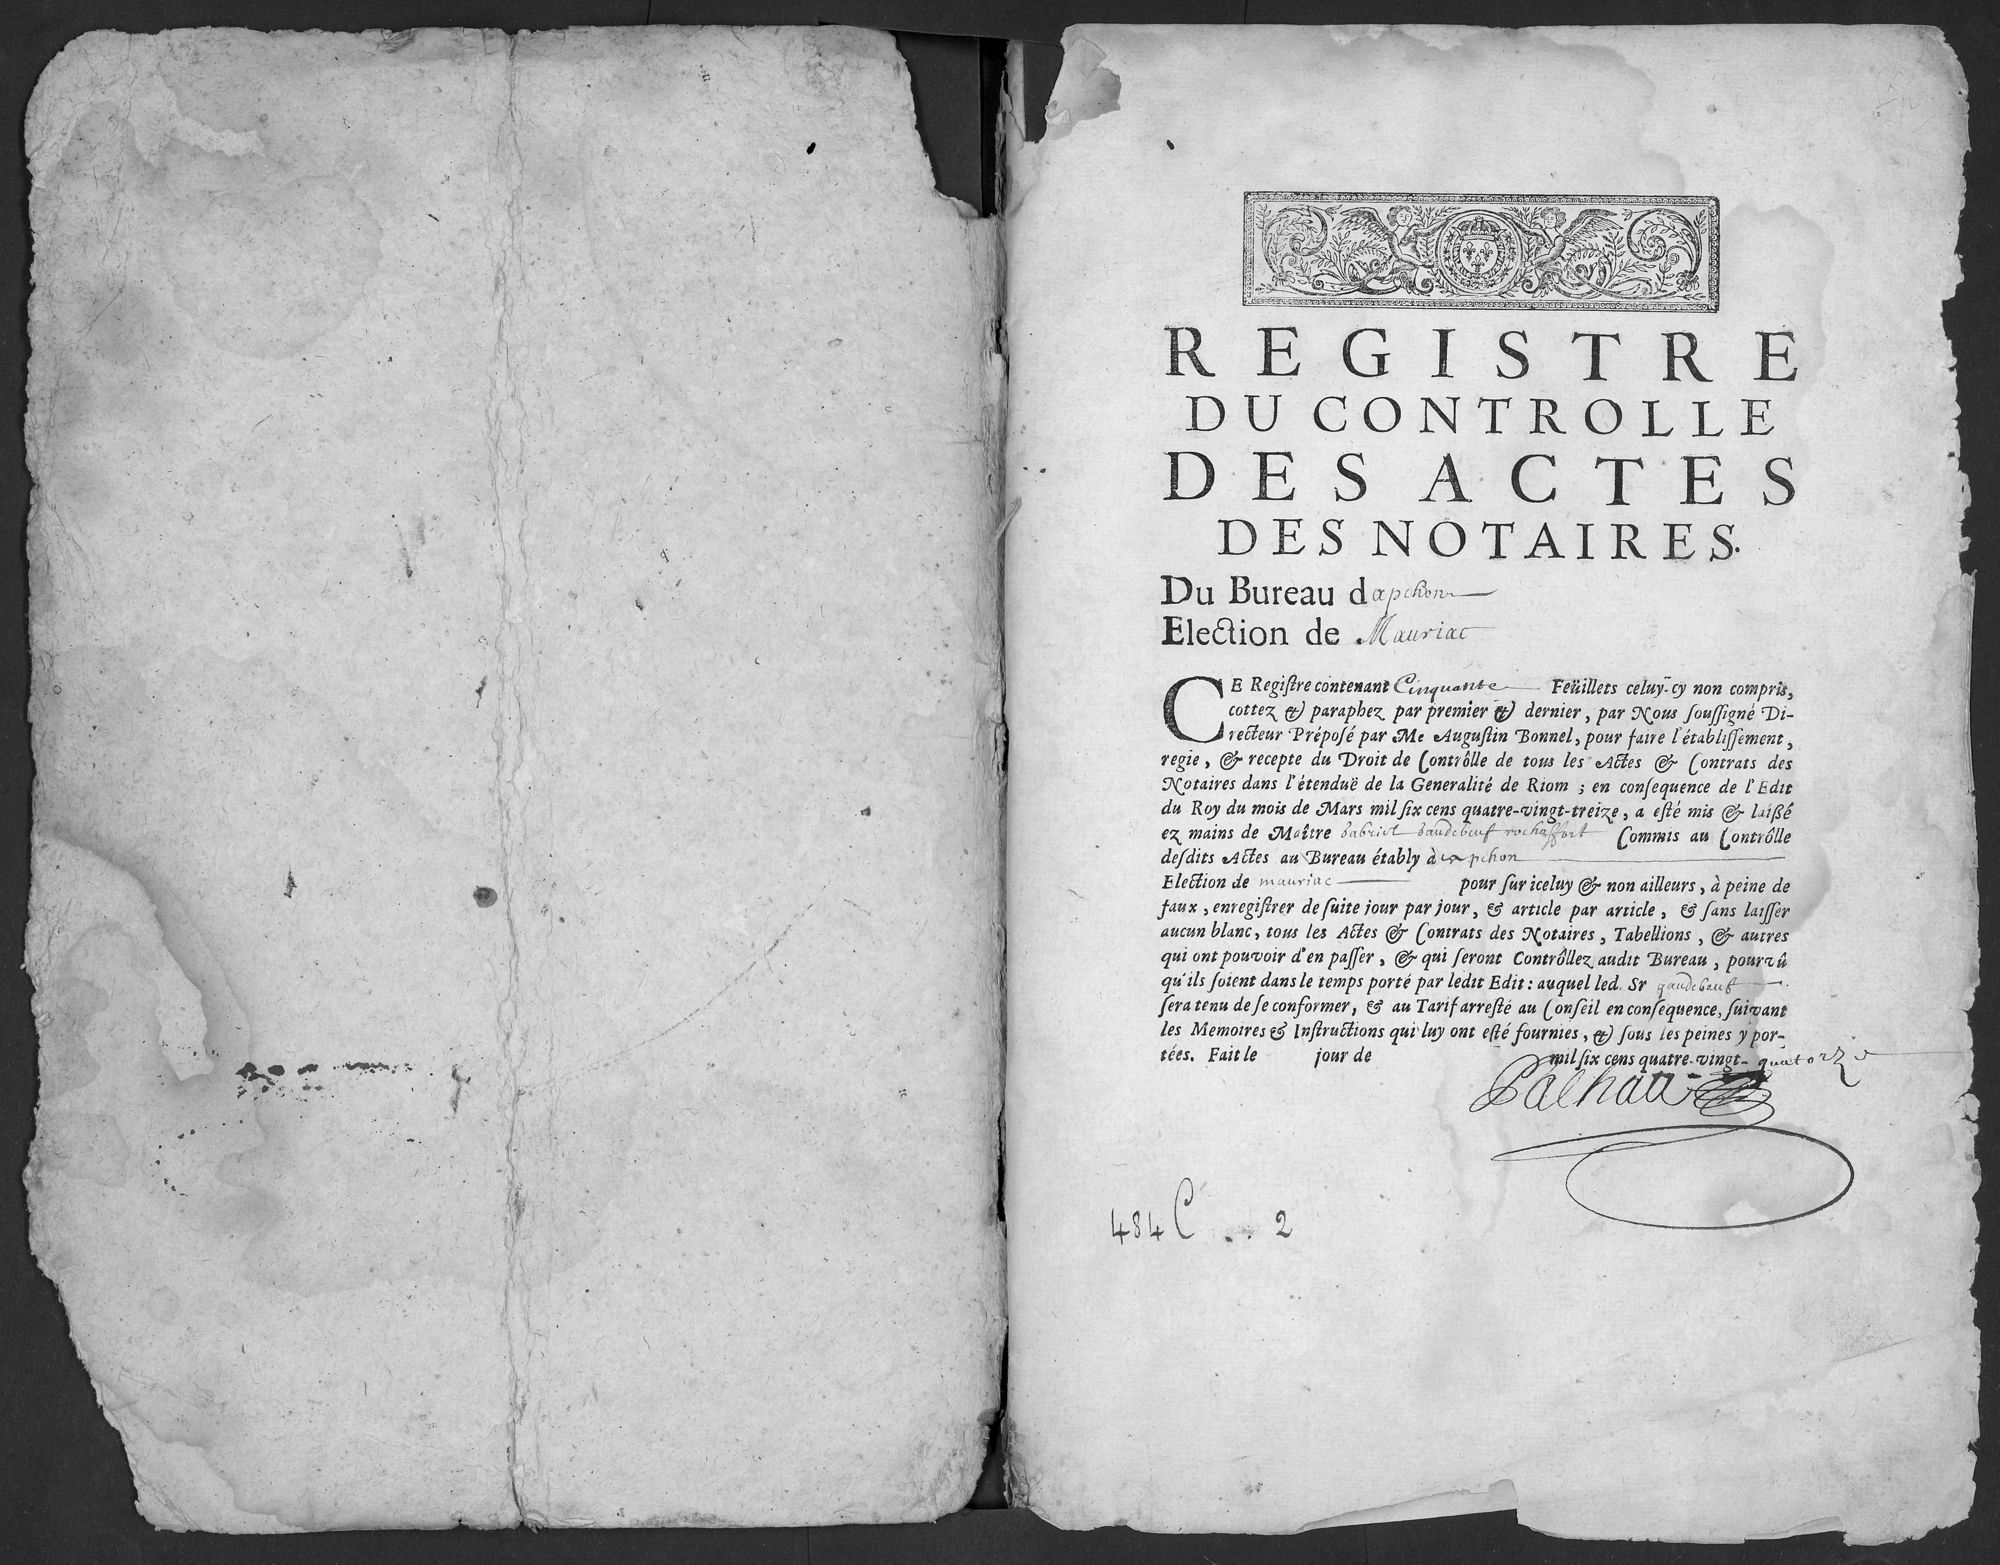 REGISTRE
DU CONTROLLE
DES ACTES
DES NOTAIRES.
Du Bureau dapchon
Election de Mauriac
CE Registre contenant Cinquante Feüillets celuy-cy non compris,
cottez & paraphez par premier & dernier, par Nous soussigné Di-
recteur Préposé par Me Augustin Bonnel, pour faire l'établissement,
regie, & recepte du Droit de Contrôlle de tous les Actes & Contrats des
Notaires dans l'étenduë de la Generalité de Riom ; en consequence de l'Edit
du Roy du mois de Mars mil six cens quatre-vingt-treize, a esté mis & laissé
ez mains de Maître gabriel gaudebeuf rochaffort Commis au Contrôlle
desdits Actes au Bureau étably à apchon
Election de mauriac pour sur iceluy & non ailleurs, à peine de
faux, enregistrer de suite jour par jour, & article par article, & sans laisser
aucun blanc, tous les Actes & Contrats des Notaires, Tabellions, & autres
qui ont pouvoir d'en passer, & qui seront Contrôllez audit Bureau, pourvû
qu'ils soient dans le temps porté par ledit Edit : auquel led. Sr gaudebeuf
sera tenu de se conformer, & au Tarif arresté au Conseil en consequence, suivant
les Memoires & Instructions qui luy ont esté fournies, & sous les peines y por-
tées. Fait le jour de mil six cens quatre-vingt- quatorze
484 C 2